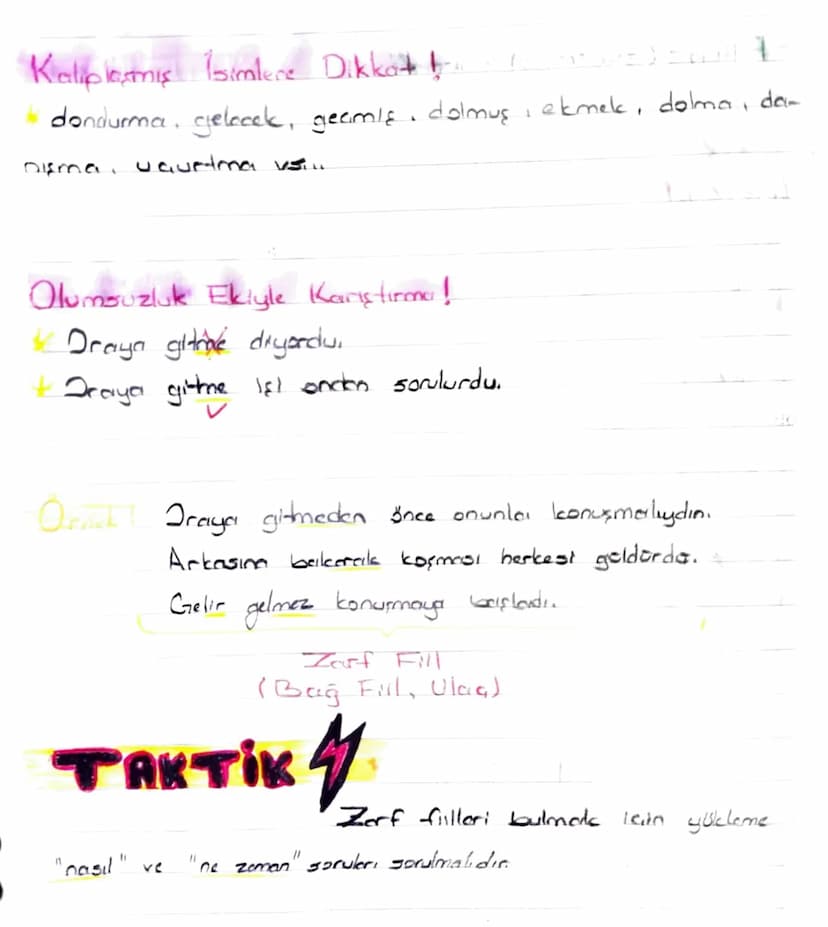 Kalıplaşmış İsimlere Dikkat!
dondurma, gelecek, geçmiş, dolmuş, ekmek, dolma, da-
nışma, uçurtma vs...
Olumsuzluk Ekiyle Karıştırma!
Oraya gitme diyordu.
Oraya gitme işi ondan sorulurdu.
Örnek! Oraya gitmeden önce onunla konuşmalıydın.
Arkasına bakarak koşması herkesi güldürdü.
Gelir gelmez konuşmaya başladı.
Zarf Fiil
(Bağ Fiil, Ulaç)
TAKTİK
Zarf fiilleri bulmak için yükleme
"nasıl" ve "ne zaman" soruları sorulmalıdır.